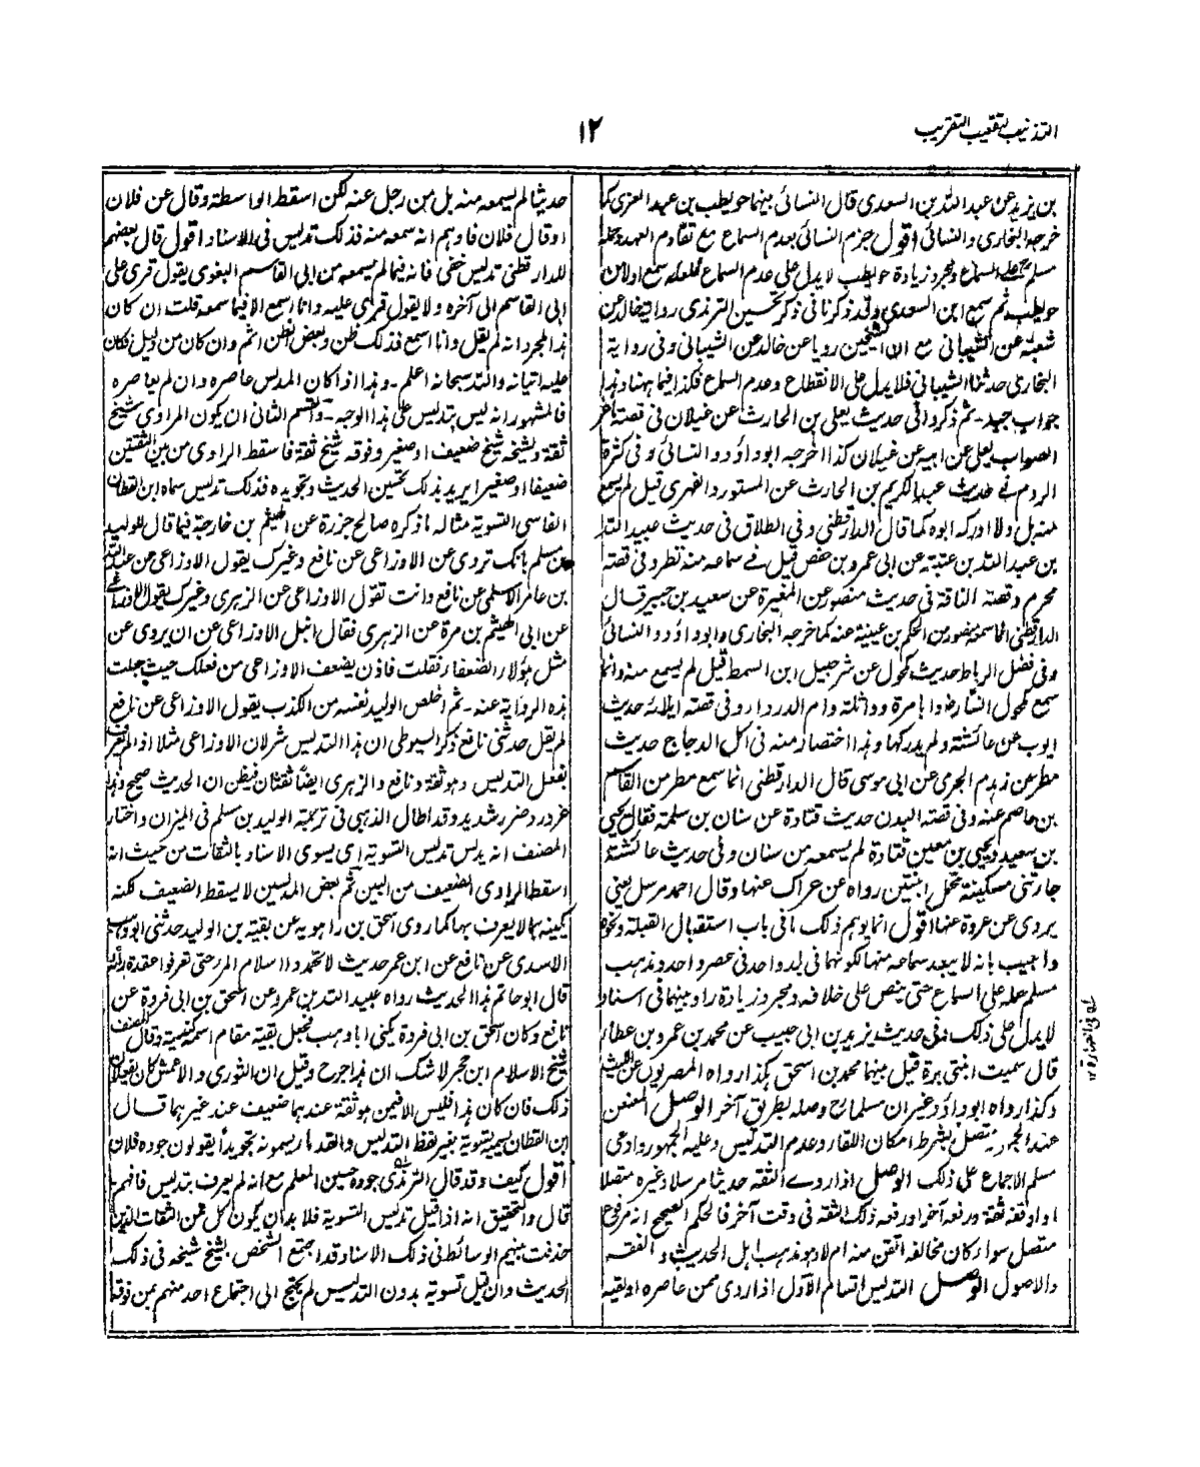 التذنيب لتعقيب التقريب
١٢
بن يزيد عن عبد الله بن السعدى قال النسائى بينهما حويطب بن عبد العزى كما
خرجه البخارى والنسائى اقول جزم النسائى بعدم السماع مع تقادم العهد
مسلم على السماع ومجرد زيادة حويطب لا يدل على عدم السماع فلعله سمع اولا من
حويطب ثم سمع ابن السعدى وقد ذكرنا فى ذكر تحسين الترمذى رواية خالد عن
شعبة عن الشيبانى مع ان الشيخين رويا عن خالد عن الشيبانى وفى رواية
البخارى حدثنا الشيبانى فلا يدل على الانقطاع وعدم السماع فكذا فيما ههنا وهذا
جواب جيد ـ ثم ذكر فى حديث يعلى بن الحارث عن غيلان فى قصة ماعز
الصواب يعلى عن ابيه عن غيلان كذا اخرجه ابو داؤد والنسائى وفى كثرة
الروم فى حديث عبد الكريم بن الحارث عن المستورد الفهرى قيل لم يسمع
منه بل ولا ادركه ابوه كما قال الدارقطنى وفى الطلاق فى حديث عبيد الله
بن عبد الله بن عتبة عن ابى عمرو بن حفص قيل فى سماعه منه نظر وفى قصة
محرم وقصته الناقة فى حديث منصور عن المغيرة عن سعيد بن جبير قال
الدارقطنى انما سمعه منصور من الحكم بن عيينة عنه كما خرجه البخارى وابو داؤد والنسائى
وفى فضل الرباط حديث مكحول عن شرحبيل ابن السمط قيل لم يسمع منه وانما
سمع مكحول انسا وابا مرة وواثلة وام الدرداء وفى قصة ايلائه حديث
ايوب عن عائشة ولم يدركها وهذا اختصار منه فى اكل الدجاج حديث
مطر عن زهدم الجرمى عن ابى موسى قال الدارقطنى انما سمع مطر من القاسم
بن عاصم عنه وفى قصة البدن حديث قتادة عن سنان بن سلمة فقال يحيى
بن سعيد ويحيى بن معين قتادة لم يسمعه من سنان وفى حديث عائشة
جاءتنى مسكينة تحمل ابنتين رواه عن عراك عنها وقال احمد مرسل يعنى
يروى عن عروة عنها اقول انما يوهم ذلك ما فى باب استقبال القبلة ونحوه
واجيب بانه لا يبعد سماعه منها لكونهما فى بلد واحد فى عصر واحد ومذهب
مسلم حمله على السماع حتى ينص على خلافه ومجرد زيادة راو بينهما فى اسناد
لا يدل على ذلك وفى حديث يزيد بن ابى حبيب عن محمد بن عمرو بن عطاء
قال سميت ابنتى برة قيل بينهما محمد بن اسحق كذا رواه المصريون عن الليث
وكذا رواه ابو داؤد غير ان مسلما وصله بطريق آخر الوصل المعنعن
عند الجمهور متصل بشرط امكان اللقاء وعدم التدليس وعليه الجمهور وادعى
مسلم الاجماع على ذلك الوصل اذا روى الثقة حديثا مرسلا وغيره متصلا
او اوقفه ثقة ورفعه آخر او رفعه ذلك الثقة فى وقت آخر فالحكم الصحيح انه مرفوع
متصل سواء كان مخالفه اتقن منه ام لا وهو مذهب اهل الحديث والفقه
والاصول الوصل التدليس اقسام الاول اذا روى ممن عاصره او لقيه
حديثا لم يسمعه منه بل من رجل عنه لكن اسقط الواسطة وقال عن فلان
او قال فلان فاوهم انه سمعه منه فذلك تدليس فى الاسناد اقول قال بعضهم
للدارقطنى تدليس خفى فانه فيما لم يسمعه من ابى القاسم البغوى يقول قرئ على
ابى القاسم الى آخره ولا يقول قرئ عليه وانا اسمع الا فيما سمعه قلت ان كان
هذا لمجرد انه لم يقل وانا اسمع فذلك ظن وبعض الظن اثم وان كان من دليل فكان
عليه اتيانه والله سبحانه اعلم ـ وهذا اذا كان المدلس عاصره وان لم يعاصره
فالمشهور انه ليس بتدليس على هذا الوجه ـ والقسم الثانى ان يكون المروى شيخ
ثقة وشيخه شيخ ضعيف او صغير وفوقه شيخ ثقة فاسقط الراوى من بين الثقتين
ضعيفا او صغيرا يريد بذلك تحسين الحديث وتجويده فذلك تدليس سماه ابن القطان
الفاسى التسوية مثاله ما ذكره صالح جزرة عن الهيثم بن خارجة فيما قال للوليد
بن مسلم بانك تروى عن الاوزاعى عن نافع وغيرك يقول الاوزاعى عن عبد الله
بن عامر الاسلمى عن نافع وانت تقول الاوزاعى عن الزهرى وغيرك يقول الاوزاعى
عن ابى الهيثم بن مرة عن الزهرى فقال انبل الاوزاعى عن ان يروى عن
مثل هؤلاء الضعفاء فقلت فاذن يضعف الاوزاعى من فعلك حيث جعلت
هذه الرواية عنه ـ ثم اخلص الوليد نفسه من الكذب يقول الاوزاعى عن نافع
لم يقل حدثنى نافع ذكر السيوطى ان هذا التدليس شر لان الاوزاعى مثلا اذا لم يعرف
بفعل التدليس وهو ثقة ونافع والزهرى ايضا ثقتان فيظن ان الحديث صحيح وهذا
غرور وضرر شديد وقد اطال الذهبى فى ترجمة الوليد بن مسلم فى الميزان واختار
المصنف انه يدلس تدليس التسوية اى يسوى الاسناد بالثقات من حيث انه
اسقط الراوى الضعيف من البين ثم بعض المدلسين لا يسقط الضعيف لكنه
يكنيه بما لا يعرف بها كما روى اسحق بن راهويه عن بقية بن الوليد حدثنى ابو وهب
الاسدى عن نافع عن ابن عمر حديث لا تحمدوا اسلام المرء حتى تعرفوا عقدة رأيه
قال ابو حاتم هذا الحديث رواه عبيد الله بن عمرو عن اسحق بن ابى فروة عن
نافع وكان اسحق بن ابى فروة يكنى ابا وهب فجعل بقية مقام اسمه كنيته وقال المصنف
شيخ الاسلام ابن حجر لا شك ان هذا جرح وقيل ان الثورى والاعمش كان يفعلان
ذلك فان كان هذا فليس الا فيمن هو ثقة عندهما ضعيف عند غيرهما قال
ابن القطان يسميه تسوية بغير لفظ التدليس والقدماء يسمونه تجويدا يقولون جوده فلان
اقول كيف وقد قال الترمذى جوده حسين المعلم مع انه لم يعرف بتدليس فافهم
قال والتحقيق انه اذا قيل تدليس التسوية فلا بد ان يكون كل من الثقات الذين
حذفت بينهم الوسائط فى ذلك الاسناد قد اجتمع الشخص بشيخ شيخه فى ذلك
الحديث وان قيل تسوية بدون التدليس لم يحتج الى اجتماع احد منهم بمن فوقه